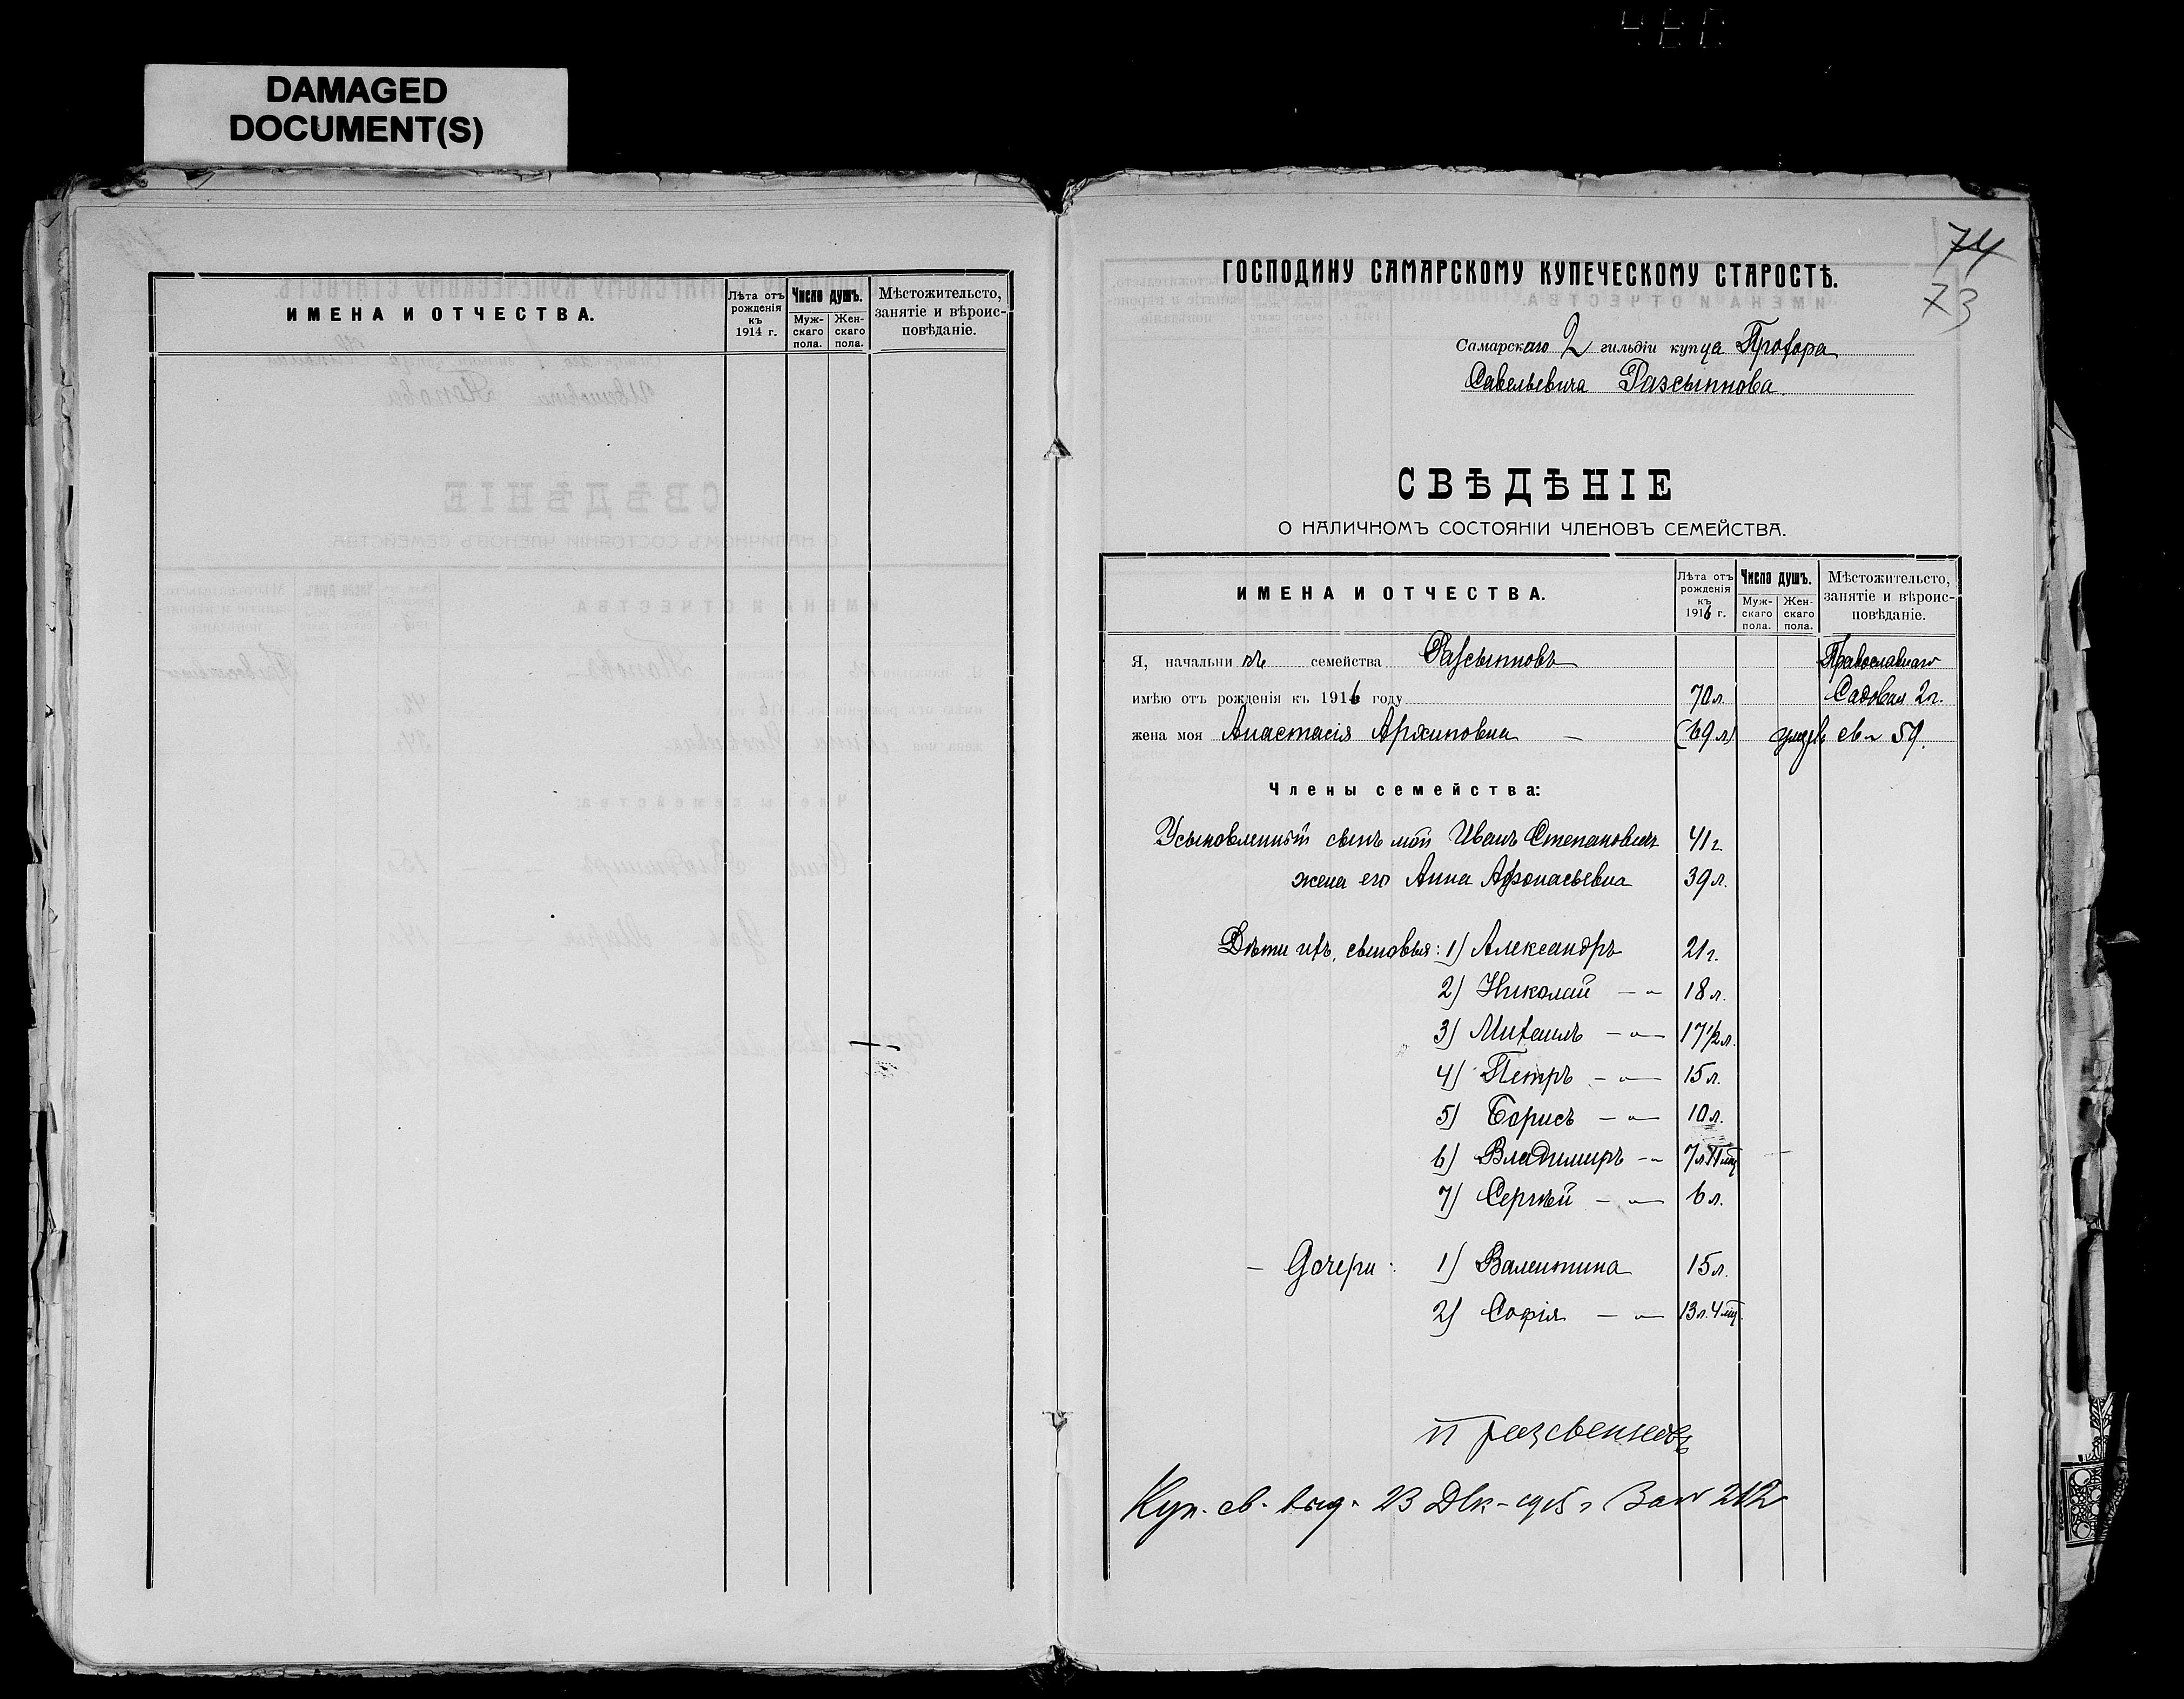 DAMAGED
DOCUMENT(S)
ИМЕНА И ОТЧЕСТВА.
Лѣта отъ рожденія къ 1914 г.
Число душъ.
Муж-скаго пола.
Жен-скаго пола.
Мѣстожительсто, занятіе и вѣроис-повѣданіе.
74
73
ГОСПОДИНУ САМАРСКОМУ КУПЕЧЕСКОМУ СТАРОСТѢ.
Самарскаго 2 гильдіи купца Прохора
Савельевича Разсыпнова
СВѢДѢНІЕ
О НАЛИЧНОМЪ СОСТОЯНІИ ЧЛЕНОВЪ СЕМЕЙСТВА.
ИМЕНА И ОТЧЕСТВА.
Лѣта отъ рожденія къ 1916 г.
Число душъ.
Муж-скаго пола.
Жен-скаго пола.
Мѣстожительсто, занятіе и вѣроис-повѣданіе.
Я, начальникъ семейства Разсыпновъ Православнаго
имѣю отъ рожденія къ 1916 году 70 л. Садовая ул.
жена моя Анастасія Архиповна — (69 л) 59.
Члены семейства:
Усыновленный сынъ мой Иванъ Степановичъ 41 г.
жена его Анна Афонасьевна 39 л.
Дѣти ихъ, сыновья: 1) Александръ 21 г.
2) Николай — " — 18 л.
3) Михаилъ — " — 17 1/2 л.
4) Петръ — " — 15 л.
5) Борисъ — " — 10 л.
6) Владимиръ — " — 7 л. 11 мц
7) Сергѣй — " — 6 л.
— Дочери: 1) Валентина 15 л.
2) Софія — " — 13 л. 4 мц.
Куп. св. выд. 23 Дек- 1915 г За № 212